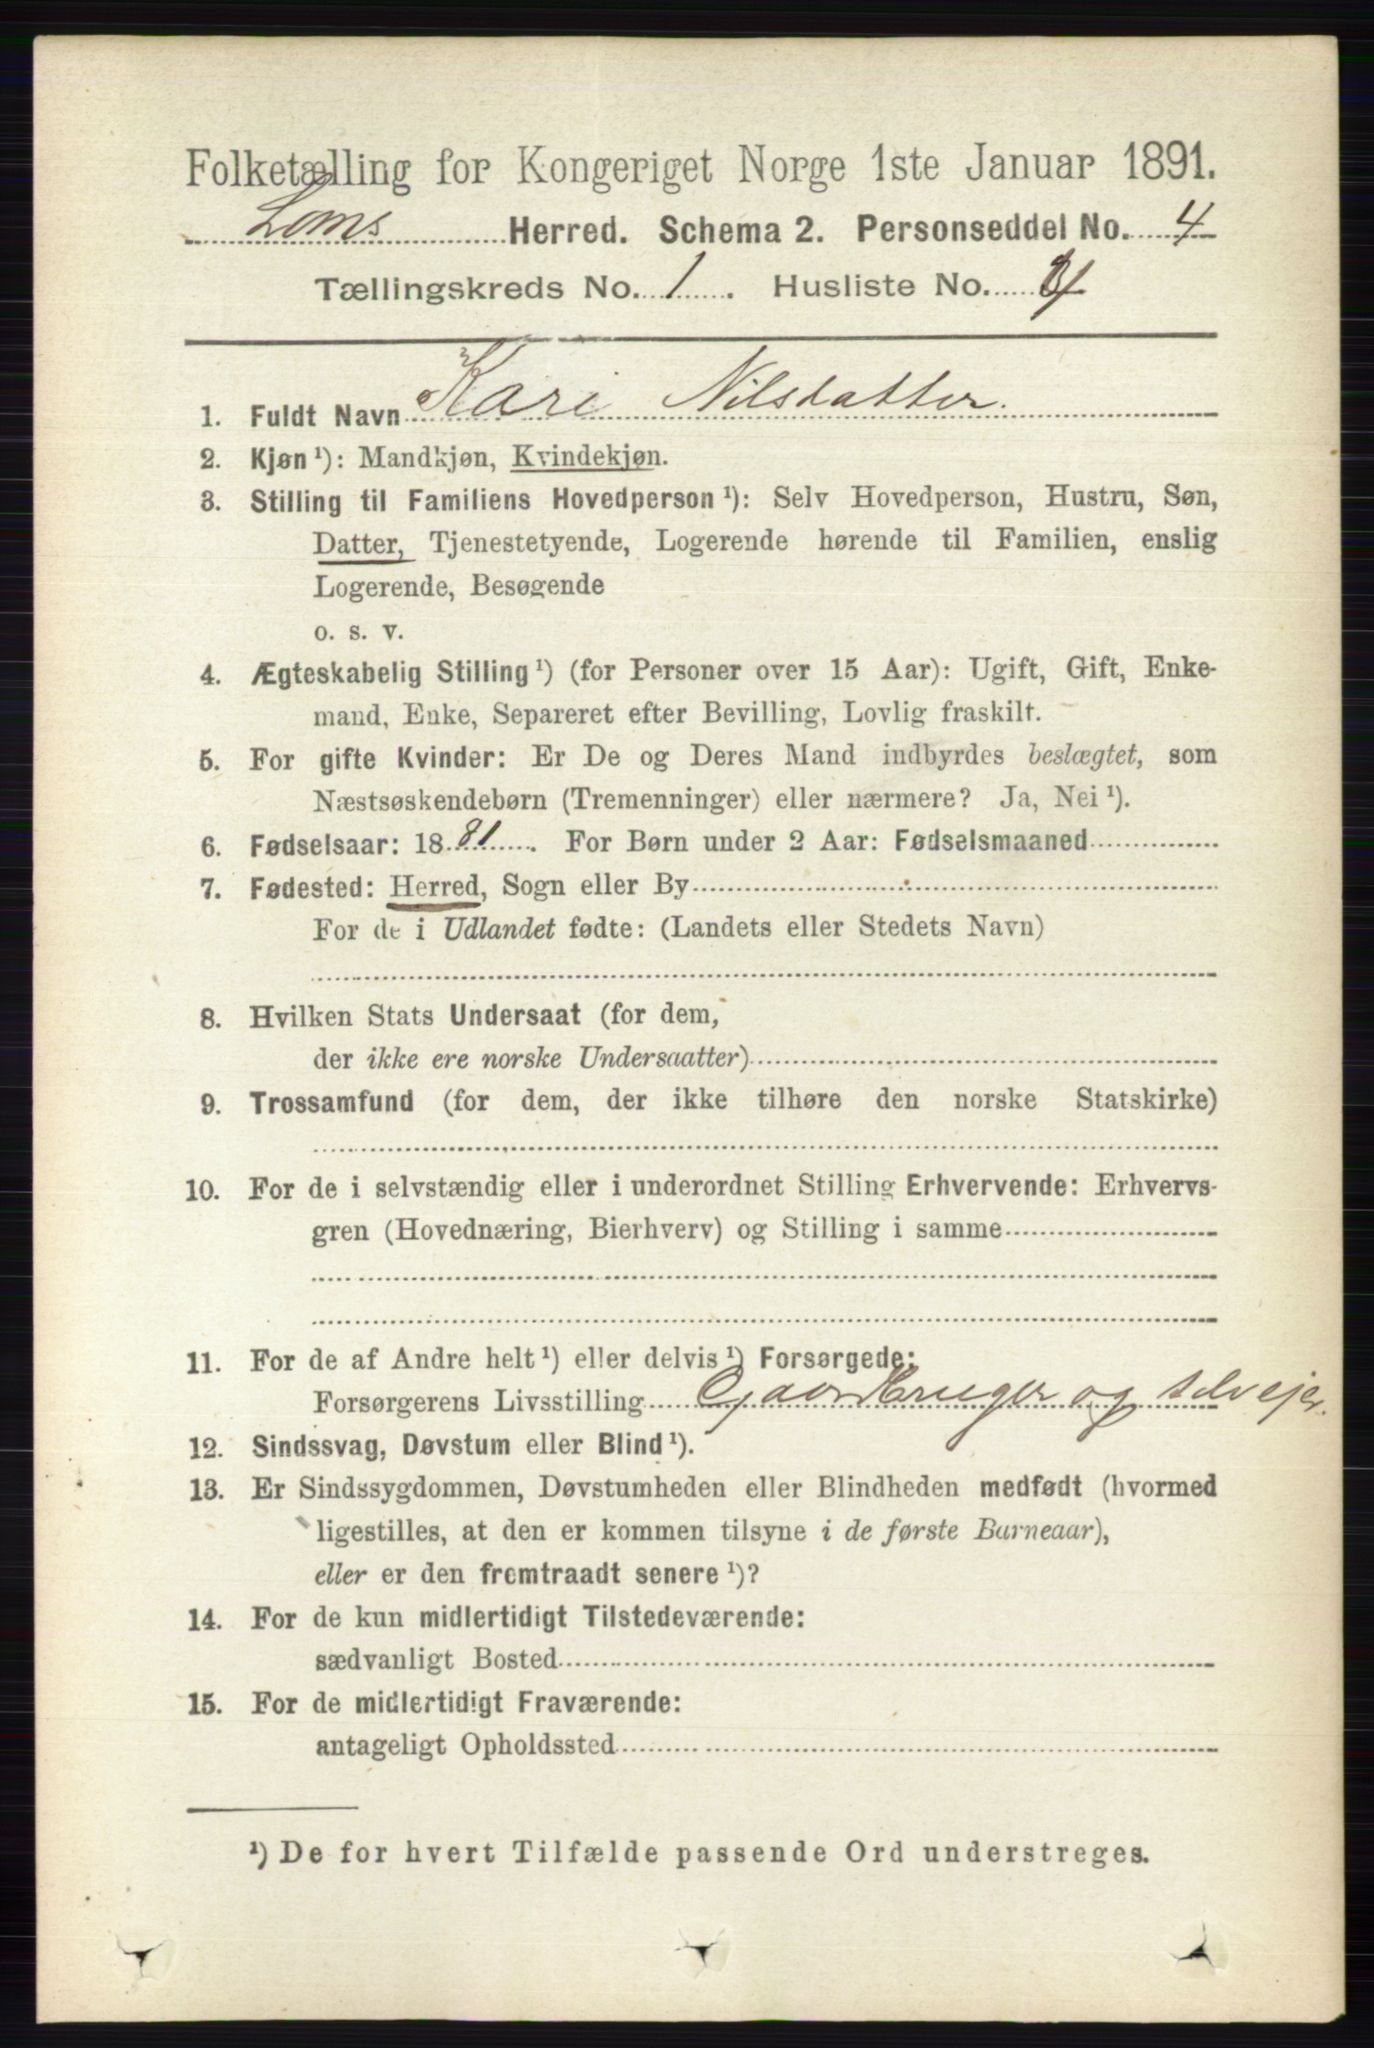 Folketælling for Kongeriget Norge 1ste Januar 1891.
Loms Herred. Schema 2. Personseddel No. 4
Tællingskreds No. 1. Husliste No.
1. Fuldt Navn Kari Nilsdatter.
2. Kjøn ¹): Mandkjøn, Kvindekjøn.
3. Stilling til Familiens Hovedperson ¹): Selv Hovedperson, Hustru, Søn,
Datter, Tjenestetyende, Logerende hørende til Familien, enslig
Logerende, Besøgende
o. s. v.
4. Ægteskabelig Stilling ¹) (for Personer over 15 Aar): Ugift, Gift, Enke-
mand, Enke, Separeret efter Bevilling, Lovlig fraskilt.
5. For gifte Kvinder: Er De og Deres Mand indbyrdes beslægtet, som
Næstsøskendebørn (Tremenninger) eller nærmere? Ja, Nei ¹).
6. Fødselsaar: 1881. For Børn under 2 Aar: Fødselsmaaned
7. Fødested: Herred, Sogn eller By
For de i Udlandet fødte: (Landets eller Stedets Navn)
8. Hvilken Stats Undersaat (for dem,
der ikke ere norske Undersaatter)
9. Trossamfund (for dem, der ikke tilhøre den norske Statskirke)
10. For de i selvstændig eller i underordnet Stilling Erhvervende: Erhvervs-
gren (Hovednæring, Bierhverv) og Stilling i samme
11. For de af Andre helt ¹) eller delvis ¹) Forsørgede:
Forsørgerens Livsstilling Gaardbruger og selvejer.
12. Sindssvag, Døvstum eller Blind ¹).
13. Er Sindssygdommen, Døvstumheden eller Blindheden medfødt (hvormed
ligestilles, at den er kommen tilsyne i de første Barneaar),
eller er den fremtraadt senere ¹)?
14. For de kun midlertidigt Tilstedeværende:
sædvanligt Bosted
15. For de midlertidigt Fraværende:
antageligt Opholdssted
¹) De for hvert Tilfælde passende Ord understreges.